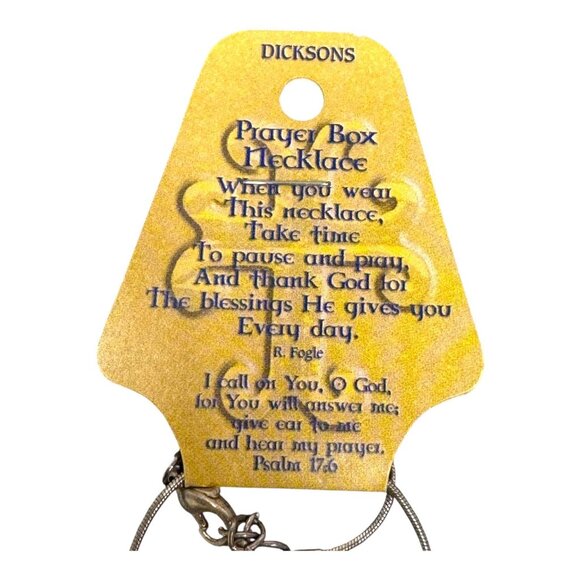 DICKSONS
Prayer Box
Necklace
When you wear
This necklace,
Take time
To pause and pray,
And thank God for
The blessings He gives you
Every day.
R. Fogle
I call on You, O God,
for You will answer me;
give ear to me
and hear my prayer.
Psalm 17:6